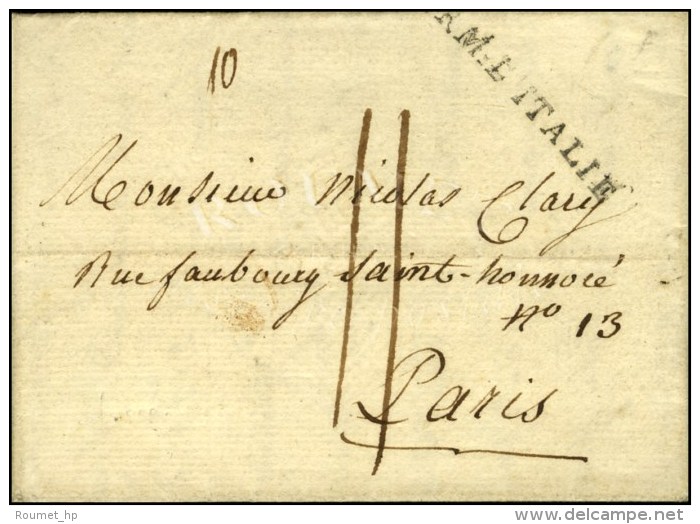 10
RM. D'ITALIE
Monsieur Nicolas Clary
Rue faubourg saint-honnoré
No 13
Paris
Roumet_hp
delcampe.net